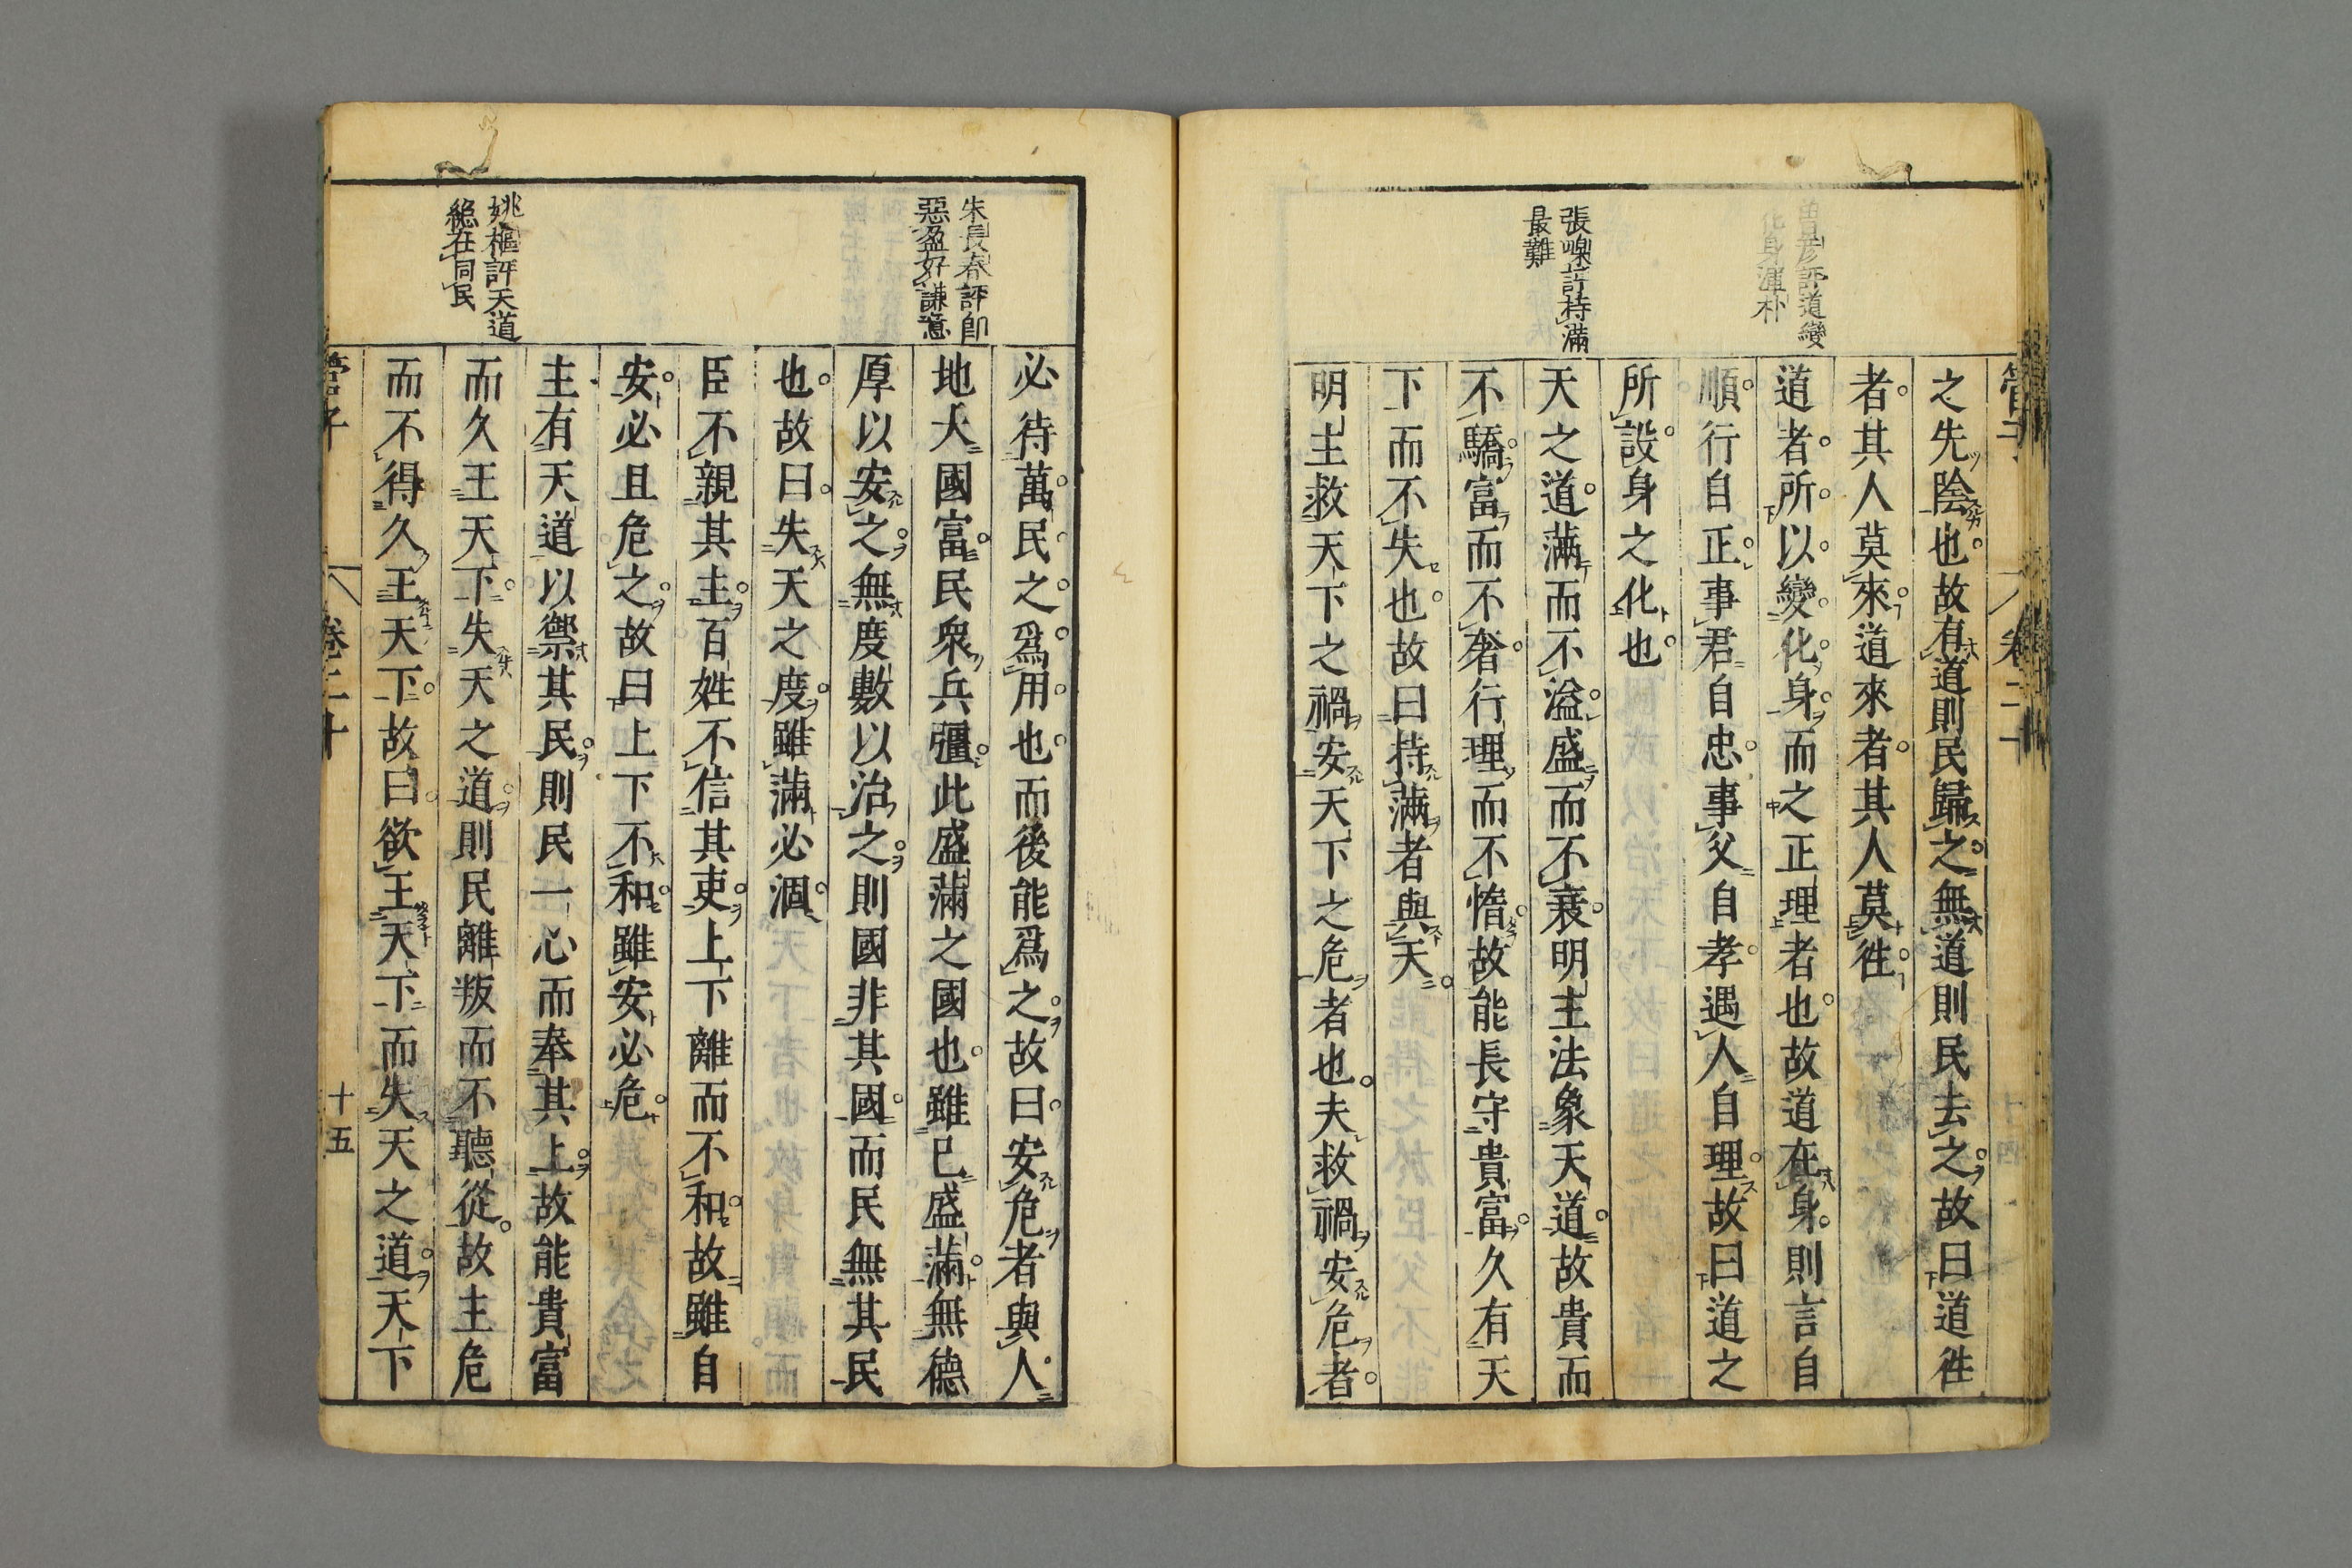 管子
卷二十
曽彥評道變
化身渾朴
張嵲評持滿
最難
之先陰也故有道則民歸之無道則民去之故曰道徃
者其人莫來道來者其人莫徃
道者所以變化身而之正理者也故道在身則言自
順行自正事君自忠事父自孝遇人自理故曰道之
所設身之化也
天之道滿而不溢盛而不衰明主法象天道故貴而
不驕富而不奢行理而不惰故能長守貴富久有天
下而不失也故曰持滿者與天
明主救天下之禍安天下之危者也夫救禍安危者
朱長春評即
惡盈好謙意
姚樞評天道
絕在同民
必待萬民之爲用也而後能爲之故曰安危者與人
地大國富民衆兵彊此盛滿之國也雖已盛滿無德
厚以安之無度數以治之則國非其國而民無其民
也故曰失天之度雖滿必涸
臣不親其主百姓不信其吏上下離而不和故雖自
安必且危之故曰上下不和雖安必危
主有天道以禦其民則民一心而奉其上故能貴富
而久王天下失天之道則民離叛而不聽從故主危
而不得久王天下故曰欲王天下而失天之道天下
管子
卷二十
十五